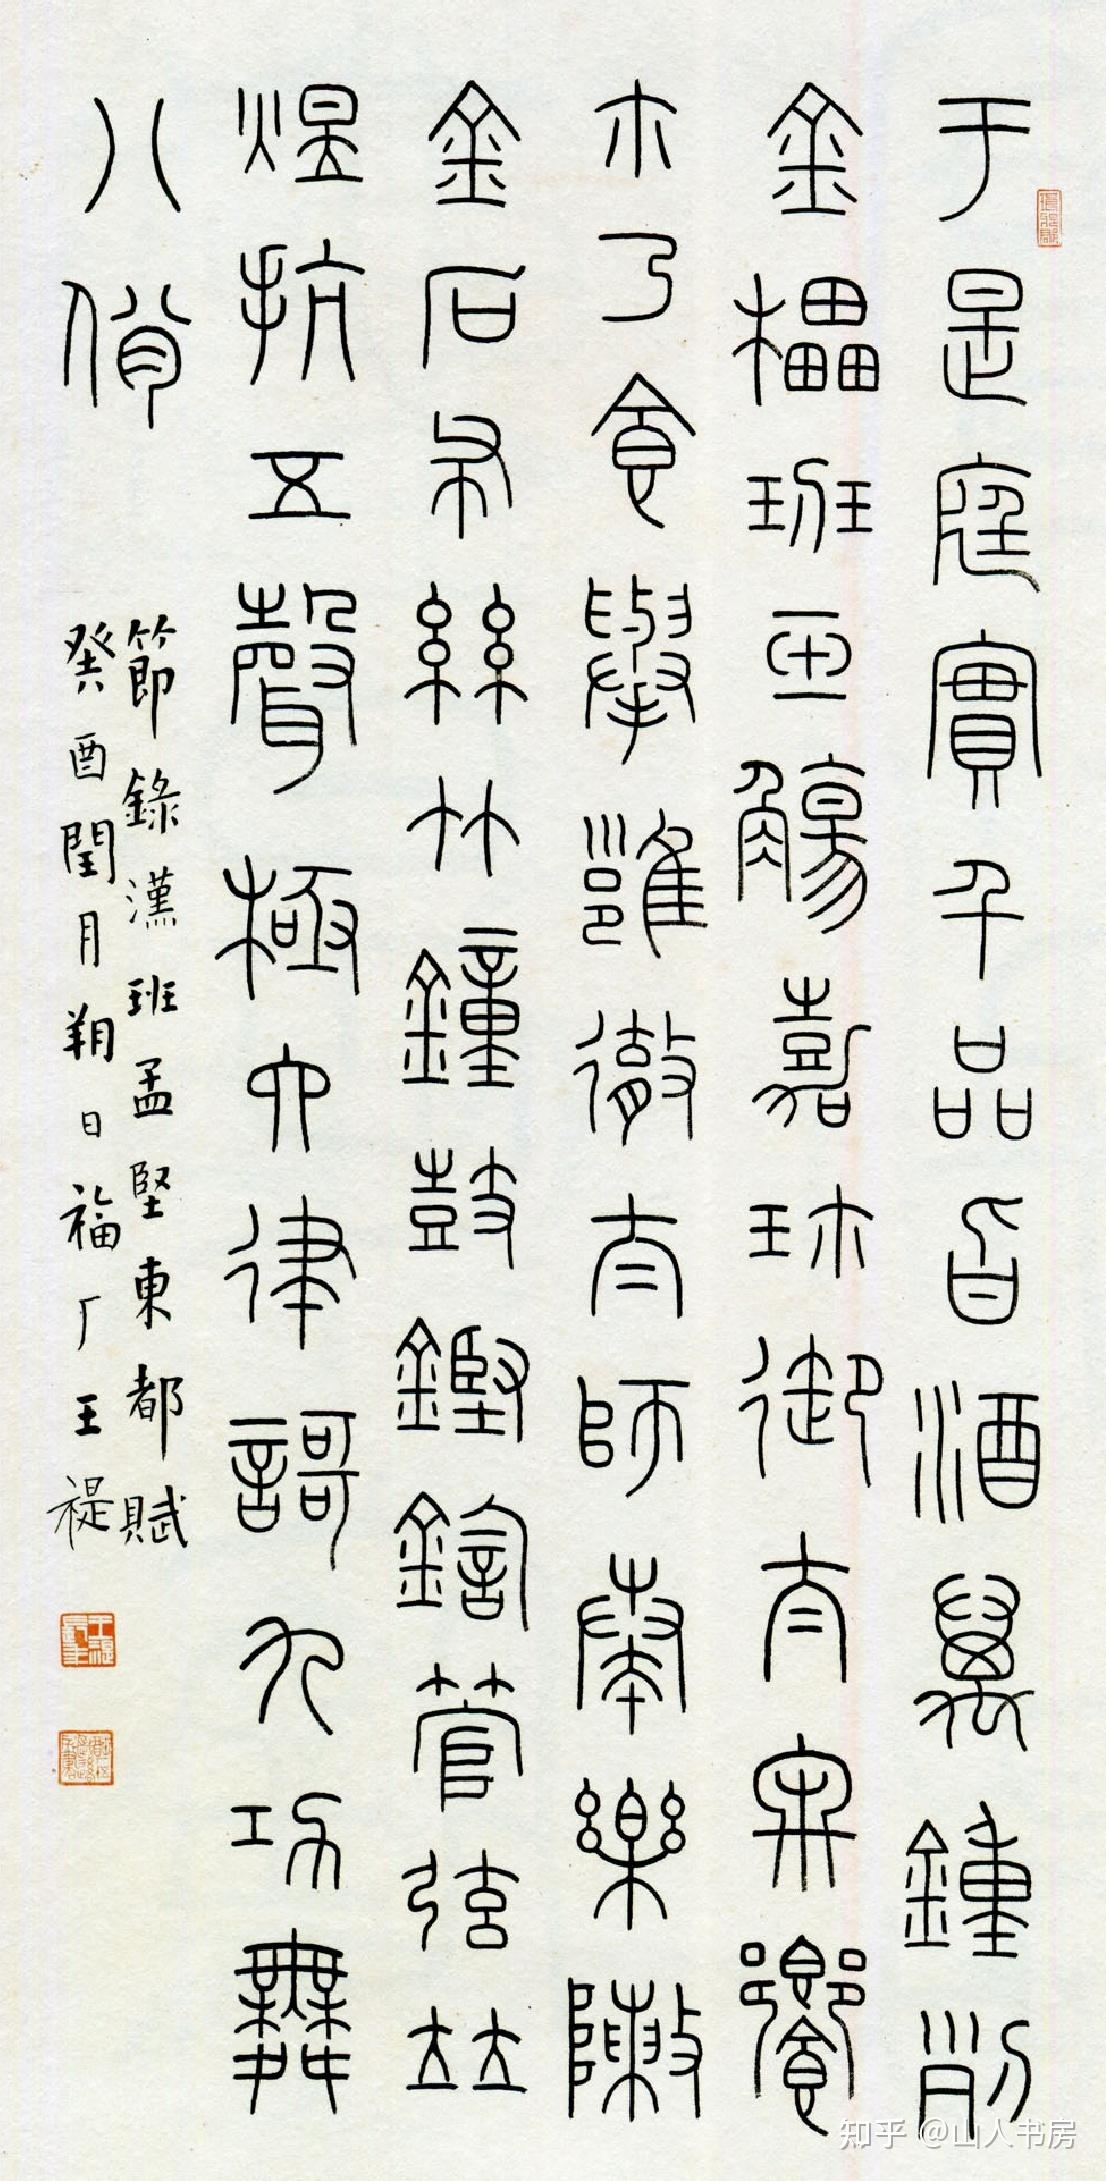 于是庭實千品旨酒萬鍾列
金櫑班玉觴嘉珎御太牢饗
尒乃食舉雝徹太師奏樂陳
金石布絲竹鐘鼓鏗鍧管弦竝
煜抗五聲極六律謌九功舞
八佾
節錄漢班孟堅東都賦
癸酉閏月朔日福厂王禔
知乎 @山人书房